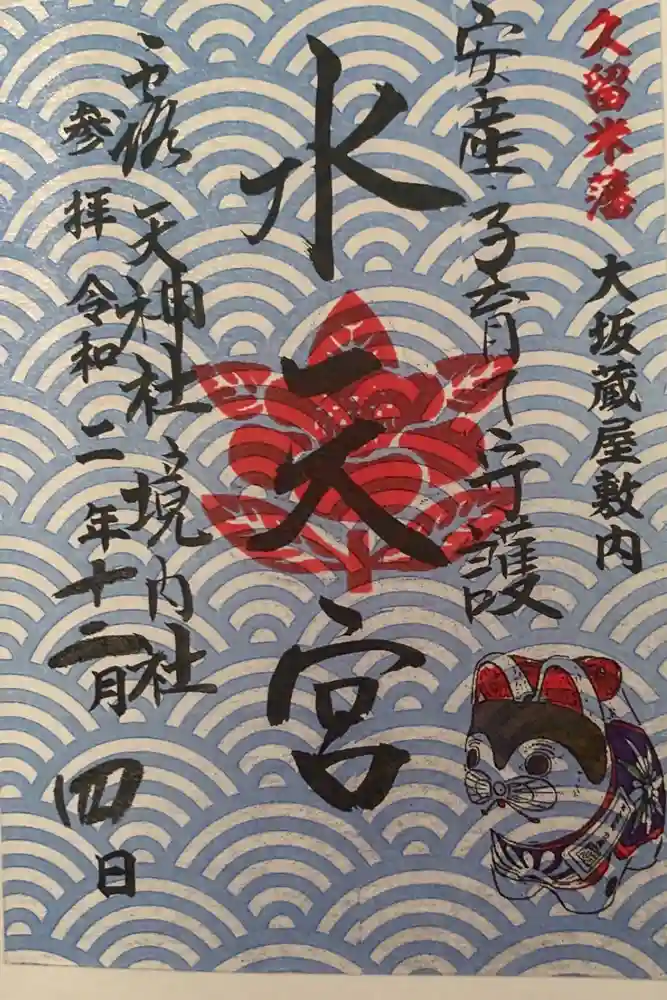 久留米藩
大坂蔵屋敷内
安産・子育て守護
水天宮
露天神社境内社
参拝令和二年十二月四日